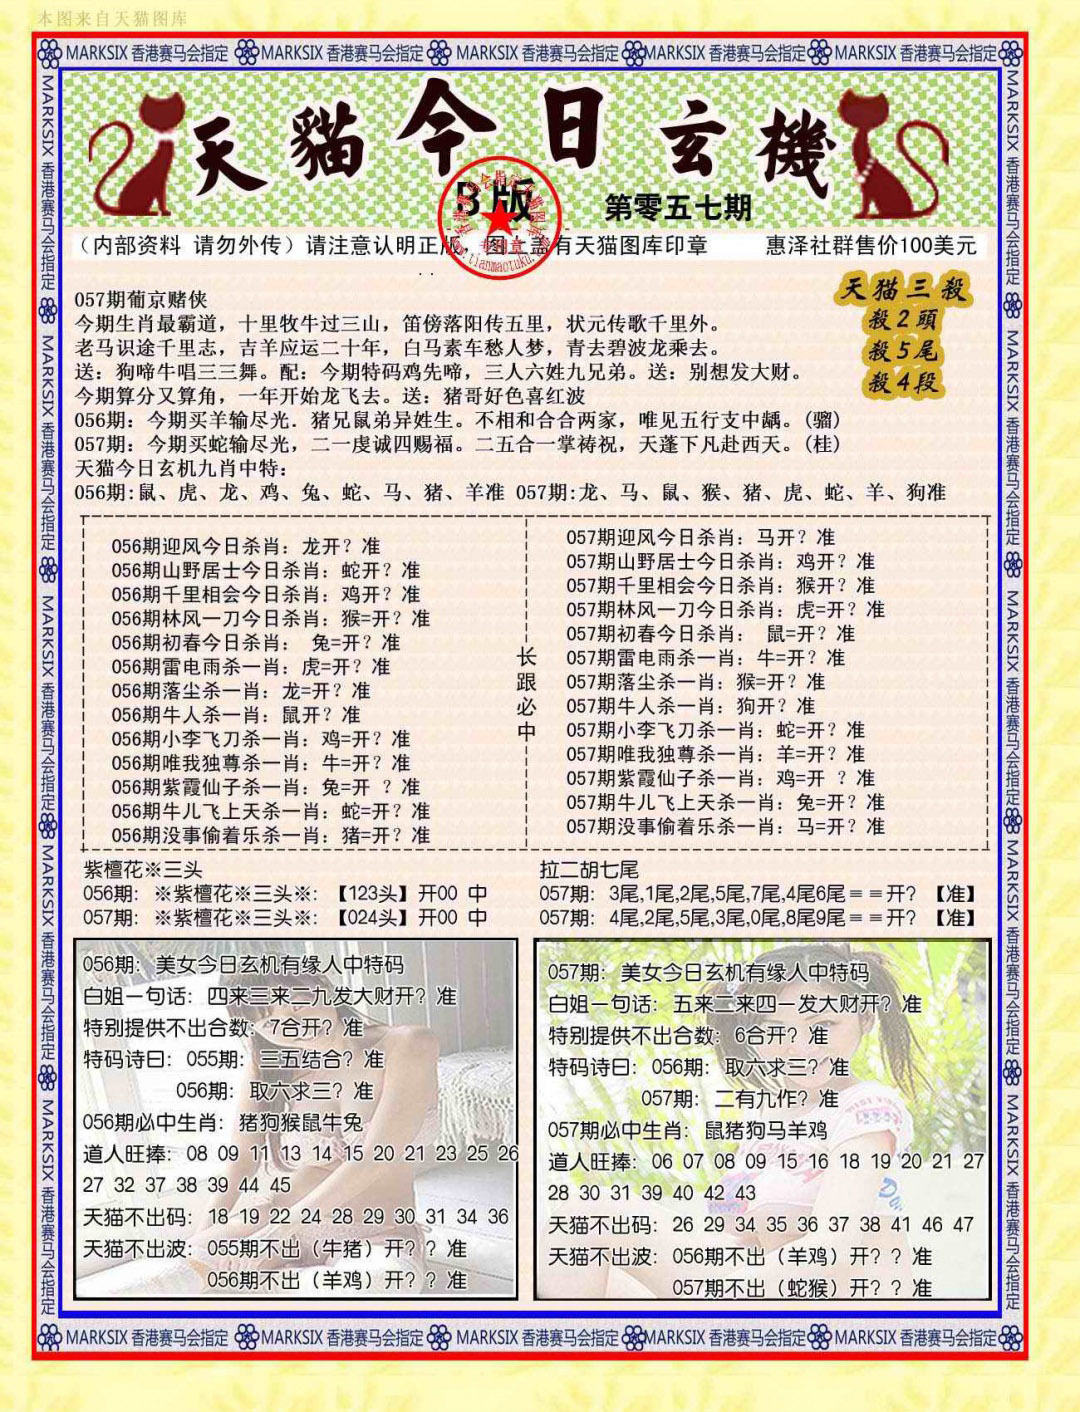 本图来自天猫图库
MARKSIX 香港赛马会指定 MARKSIX 香港赛马会指定 MARKSIX 香港赛马会指定 MARKSIX 香港赛马会指定 MARKSIX 香港赛马会指定
天貓今日玄機
B版
第零五七期
(内部资料 请勿外传) 请注意认明正版, 图上盖有天猫图库印章 惠泽社群售价100美元
天猫三殺
殺2頭
殺5尾
殺4段
057期葡京赌侠
今期生肖最霸道，十里牧牛过三山，笛傍落阳传五里，状元传歌千里外。
老马识途千里志，吉羊应运二十年，白马素车愁人梦，青去碧波龙乘去。
送：狗啼牛唱三三舞。配：今期特码鸡先啼，三人六姓九兄弟。送：别想发大财。
今期算分又算角，一年开始龙飞去。送：猪哥好色喜红波
056期：今期买羊输尽光．猪兄鼠弟异姓生。不相和合合两家，唯见五行支中龋。(骝)
057期：今期买蛇输尽光，二一虔诚四赐福。二五合一掌祷祝，天蓬下凡赴西天。(桂)
天猫今日玄机九肖中特：
056期:鼠、虎、龙、鸡、兔、蛇、马、猪、羊准 057期:龙、马、鼠、猴、猪、虎、蛇、羊、狗准
056期迎风今日杀肖：龙开？准
056期山野居士今日杀肖：蛇开？准
056期千里相会今日杀肖：鸡开？准
056期林风一刀今日杀肖：猴=开？准
056期初春今日杀肖： 兔=开？准
056期雷电雨杀一肖：虎=开？准
056期落尘杀一肖：龙=开？准
056期牛人杀一肖：鼠开？准
056期小李飞刀杀一肖：鸡=开？准
056期唯我独尊杀一肖：牛=开？准
056期紫霞仙子杀一肖：兔=开 ？准
056期牛儿飞上天杀一肖：蛇=开？准
056期没事偷着乐杀一肖：猪=开？准
长跟必中
057期迎风今日杀肖：马开？准
057期山野居士今日杀肖：鸡开？准
057期千里相会今日杀肖：猴开？准
057期林风一刀今日杀肖：虎=开？准
057期初春今日杀肖： 鼠=开？准
057期雷电雨杀一肖：牛=开？准
057期落尘杀一肖：猴=开？准
057期牛人杀一肖：狗开？准
057期小李飞刀杀一肖：蛇=开？准
057期唯我独尊杀一肖：羊=开？准
057期紫霞仙子杀一肖：鸡=开 ？准
057期牛儿飞上天杀一肖：兔=开？准
057期没事偷着乐杀一肖：马=开？准
紫檀花※三头
056期：※紫檀花※三头※：【123头】开00 中
057期：※紫檀花※三头※：【024头】开00 中
拉二胡七尾
057期：3尾,1尾,2尾,5尾,7尾,4尾6尾＝＝开？【准】
057期：4尾,2尾,5尾,3尾,0尾,8尾9尾＝＝开？【准】
056期：美女今日玄机有缘人中特码
白姐一句话：四来三来二九发大财开？准
特别提供不出合数：7合开？准
特码诗曰：055期：三五结合？准
056期：取六求三？准
056期必中生肖：猪狗猴鼠牛兔
道人旺捧：08 09 11 13 14 15 20 21 23 25 26
27 32 37 38 39 44 45
天猫不出码：18 19 22 24 28 29 30 31 34 36
天猫不出波：055期不出（牛猪）开？？准
056期不出（羊鸡）开？？准
057期：美女今日玄机有缘人中特码
白姐一句话：五来二来四一发大财开？准
特别提供不出合数：6合开？准
特码诗曰：056期：取六求三？准
057期：二有九作？准
057期必中生肖：鼠猪狗马羊鸡
道人旺捧：06 07 08 09 15 16 18 19 20 21 27
28 30 31 39 40 42 43
天猫不出码：26 29 34 35 36 37 38 41 46 47
天猫不出波：056期不出（羊鸡）开？？准
057期不出（蛇猴）开？？准
MARKSIX 香港赛马会指定 MARKSIX 香港赛马会指定 MARKSIX 香港赛马会指定 MARKSIX 香港赛马会指定 MARKSIX 香港赛马会指定